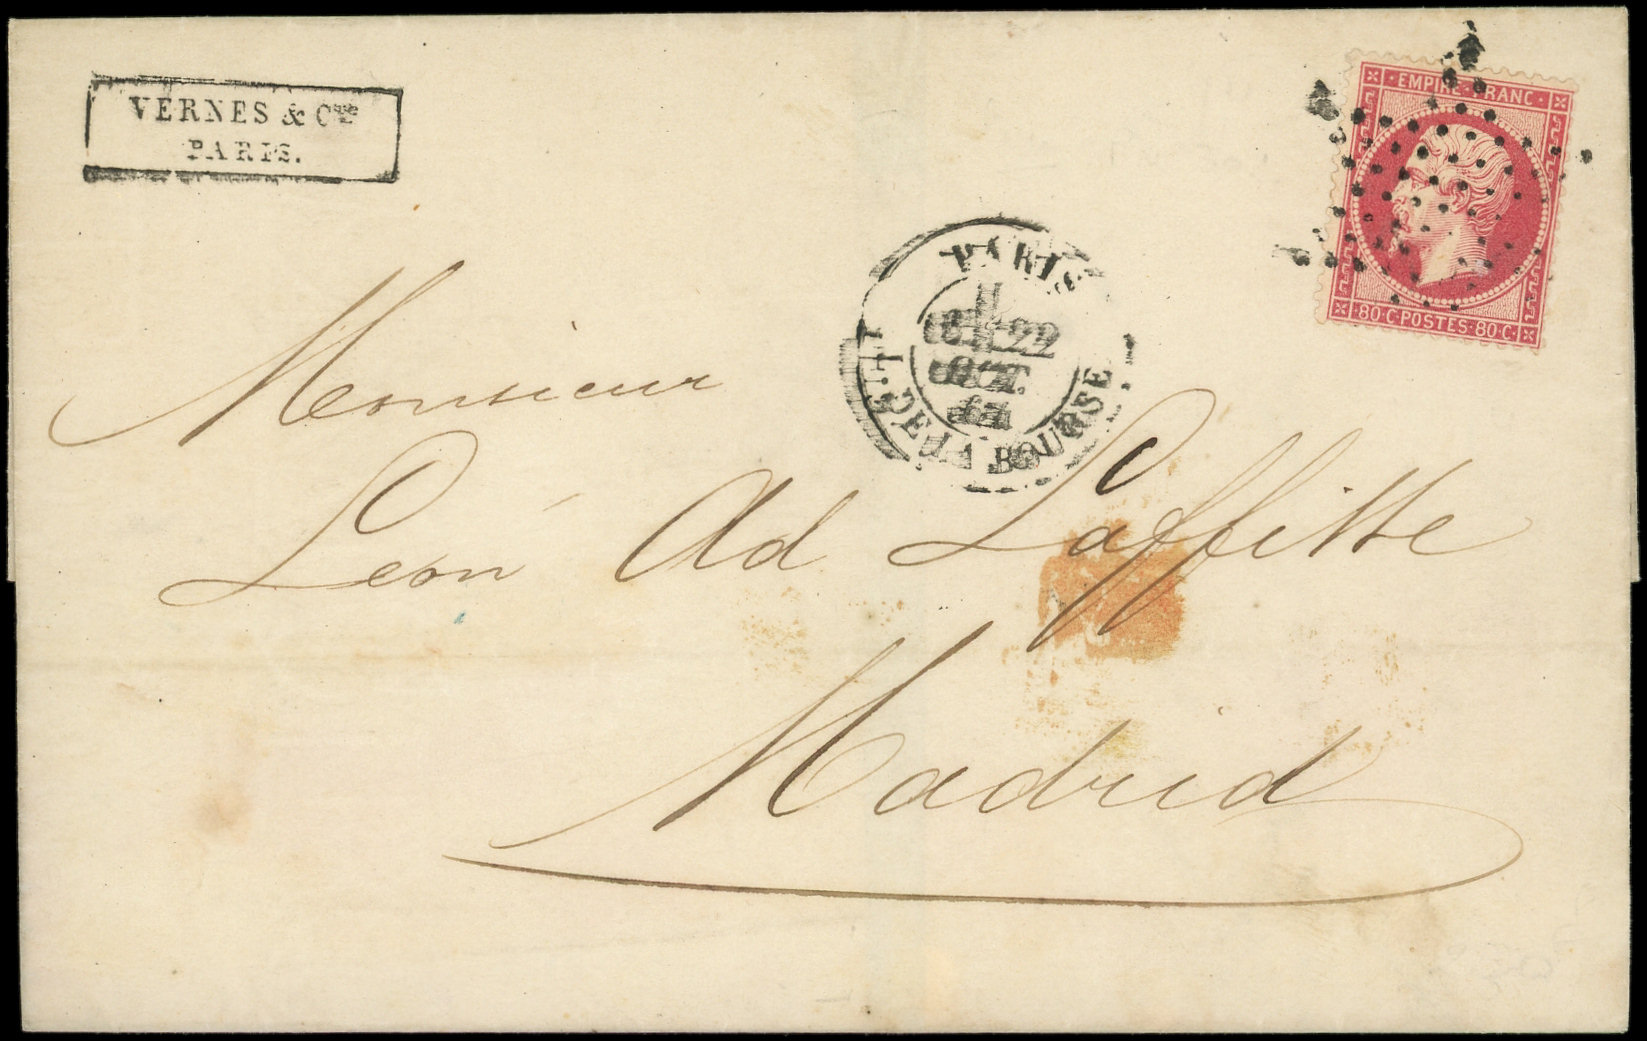 VERNES & Cie
PARIS.
EMPIRE · FRANC ·
80 · C · POSTES · 80 · C ·
PARIS
22
OCT.
BOURSE
Monsieur
Léon Ad Laffitte
Madrid